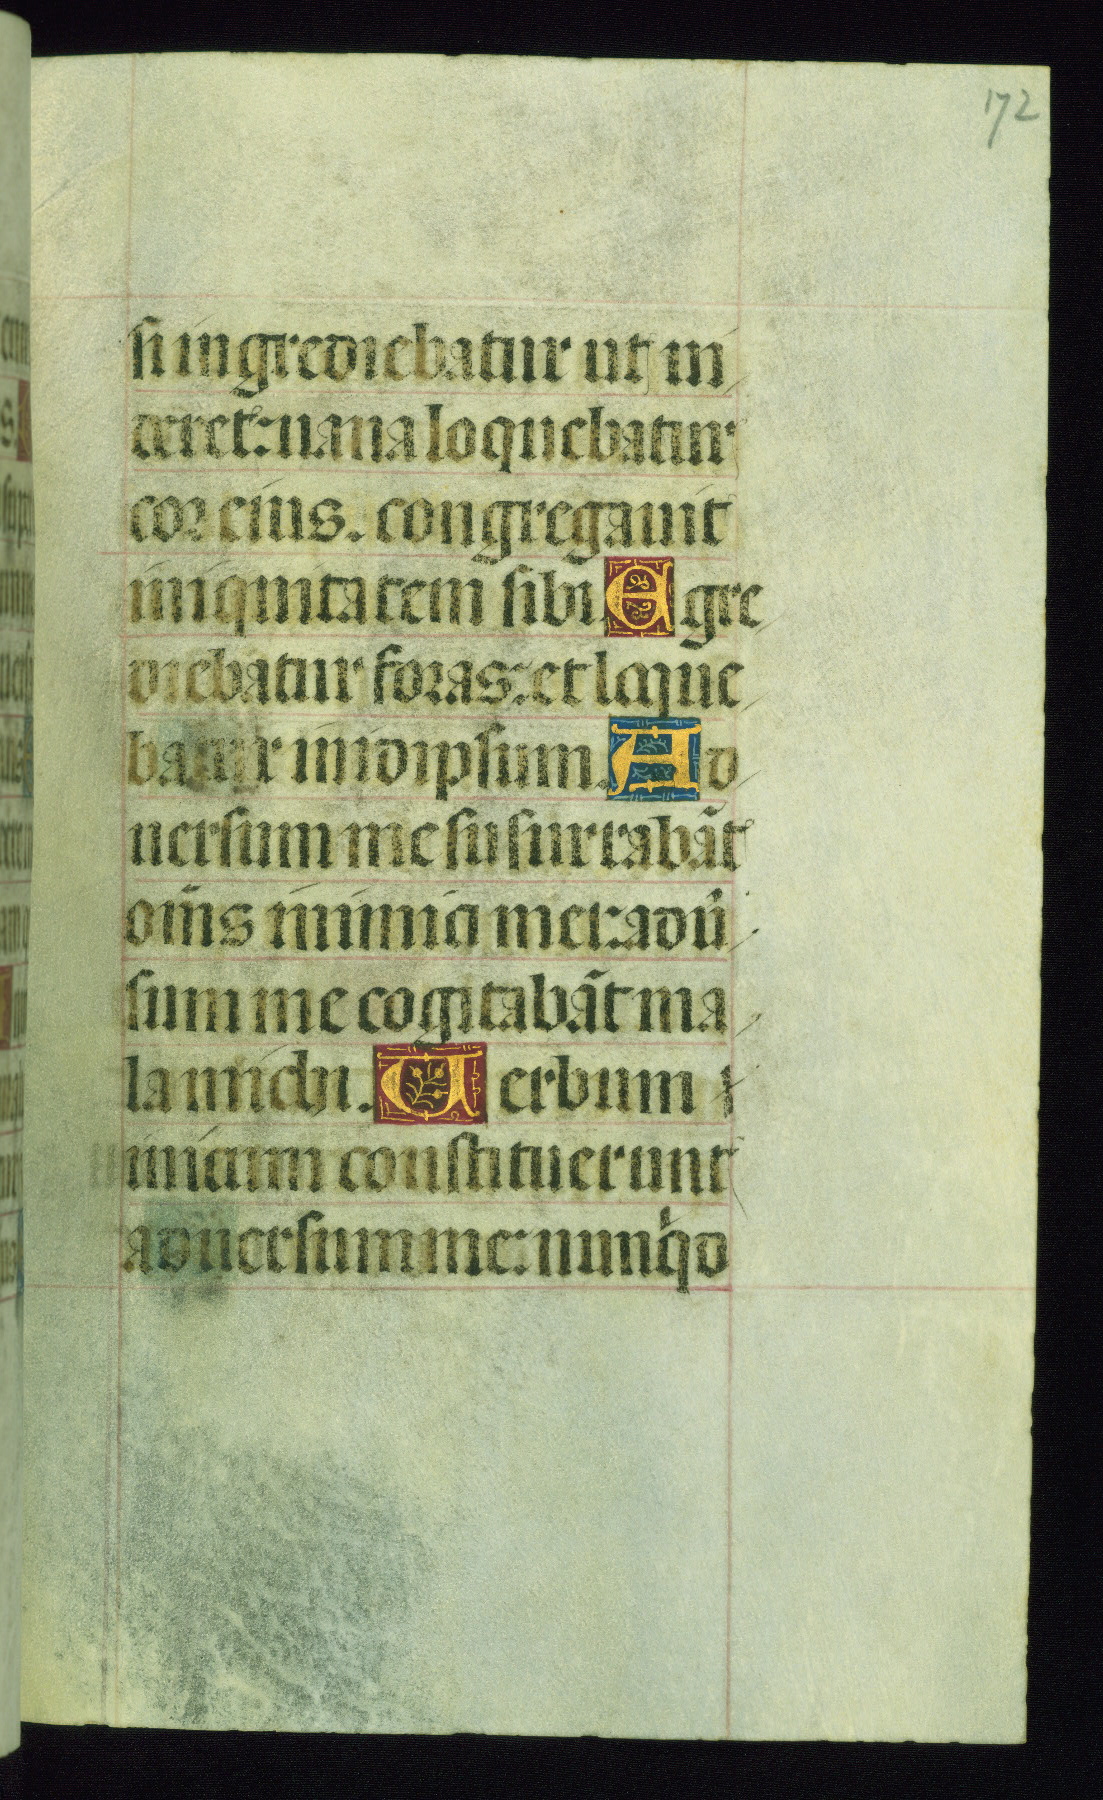 172
si ingrediebatur ut ui
deret: uana loquebatur
cor eius. congregauit
iniquitatem sibi. Egre
diebatur foras: et loque
batur in idipsum. Ad
uersum me susurrabāt
oīīs inimici mei: aduͥ
sum me cogitabāt ma
la michi. Uerbum i
nicum constituerunt
aduersum me: nunqͥd